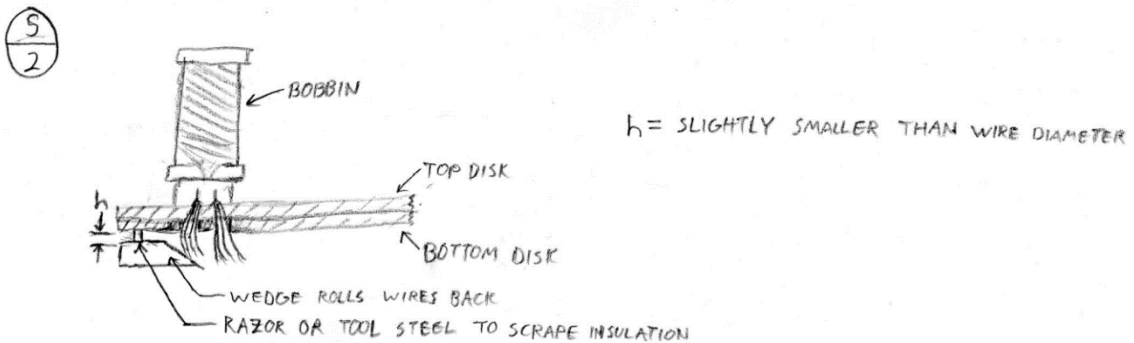 5
2
BOBBIN
h = SLIGHTLY SMALLER THAN WIRE DIAMETER
TOP DISK
h
BOTTOM DISK
WEDGE ROLLS WIRES BACK
RAZOR OR TOOL STEEL TO SCRAPE INSULATION